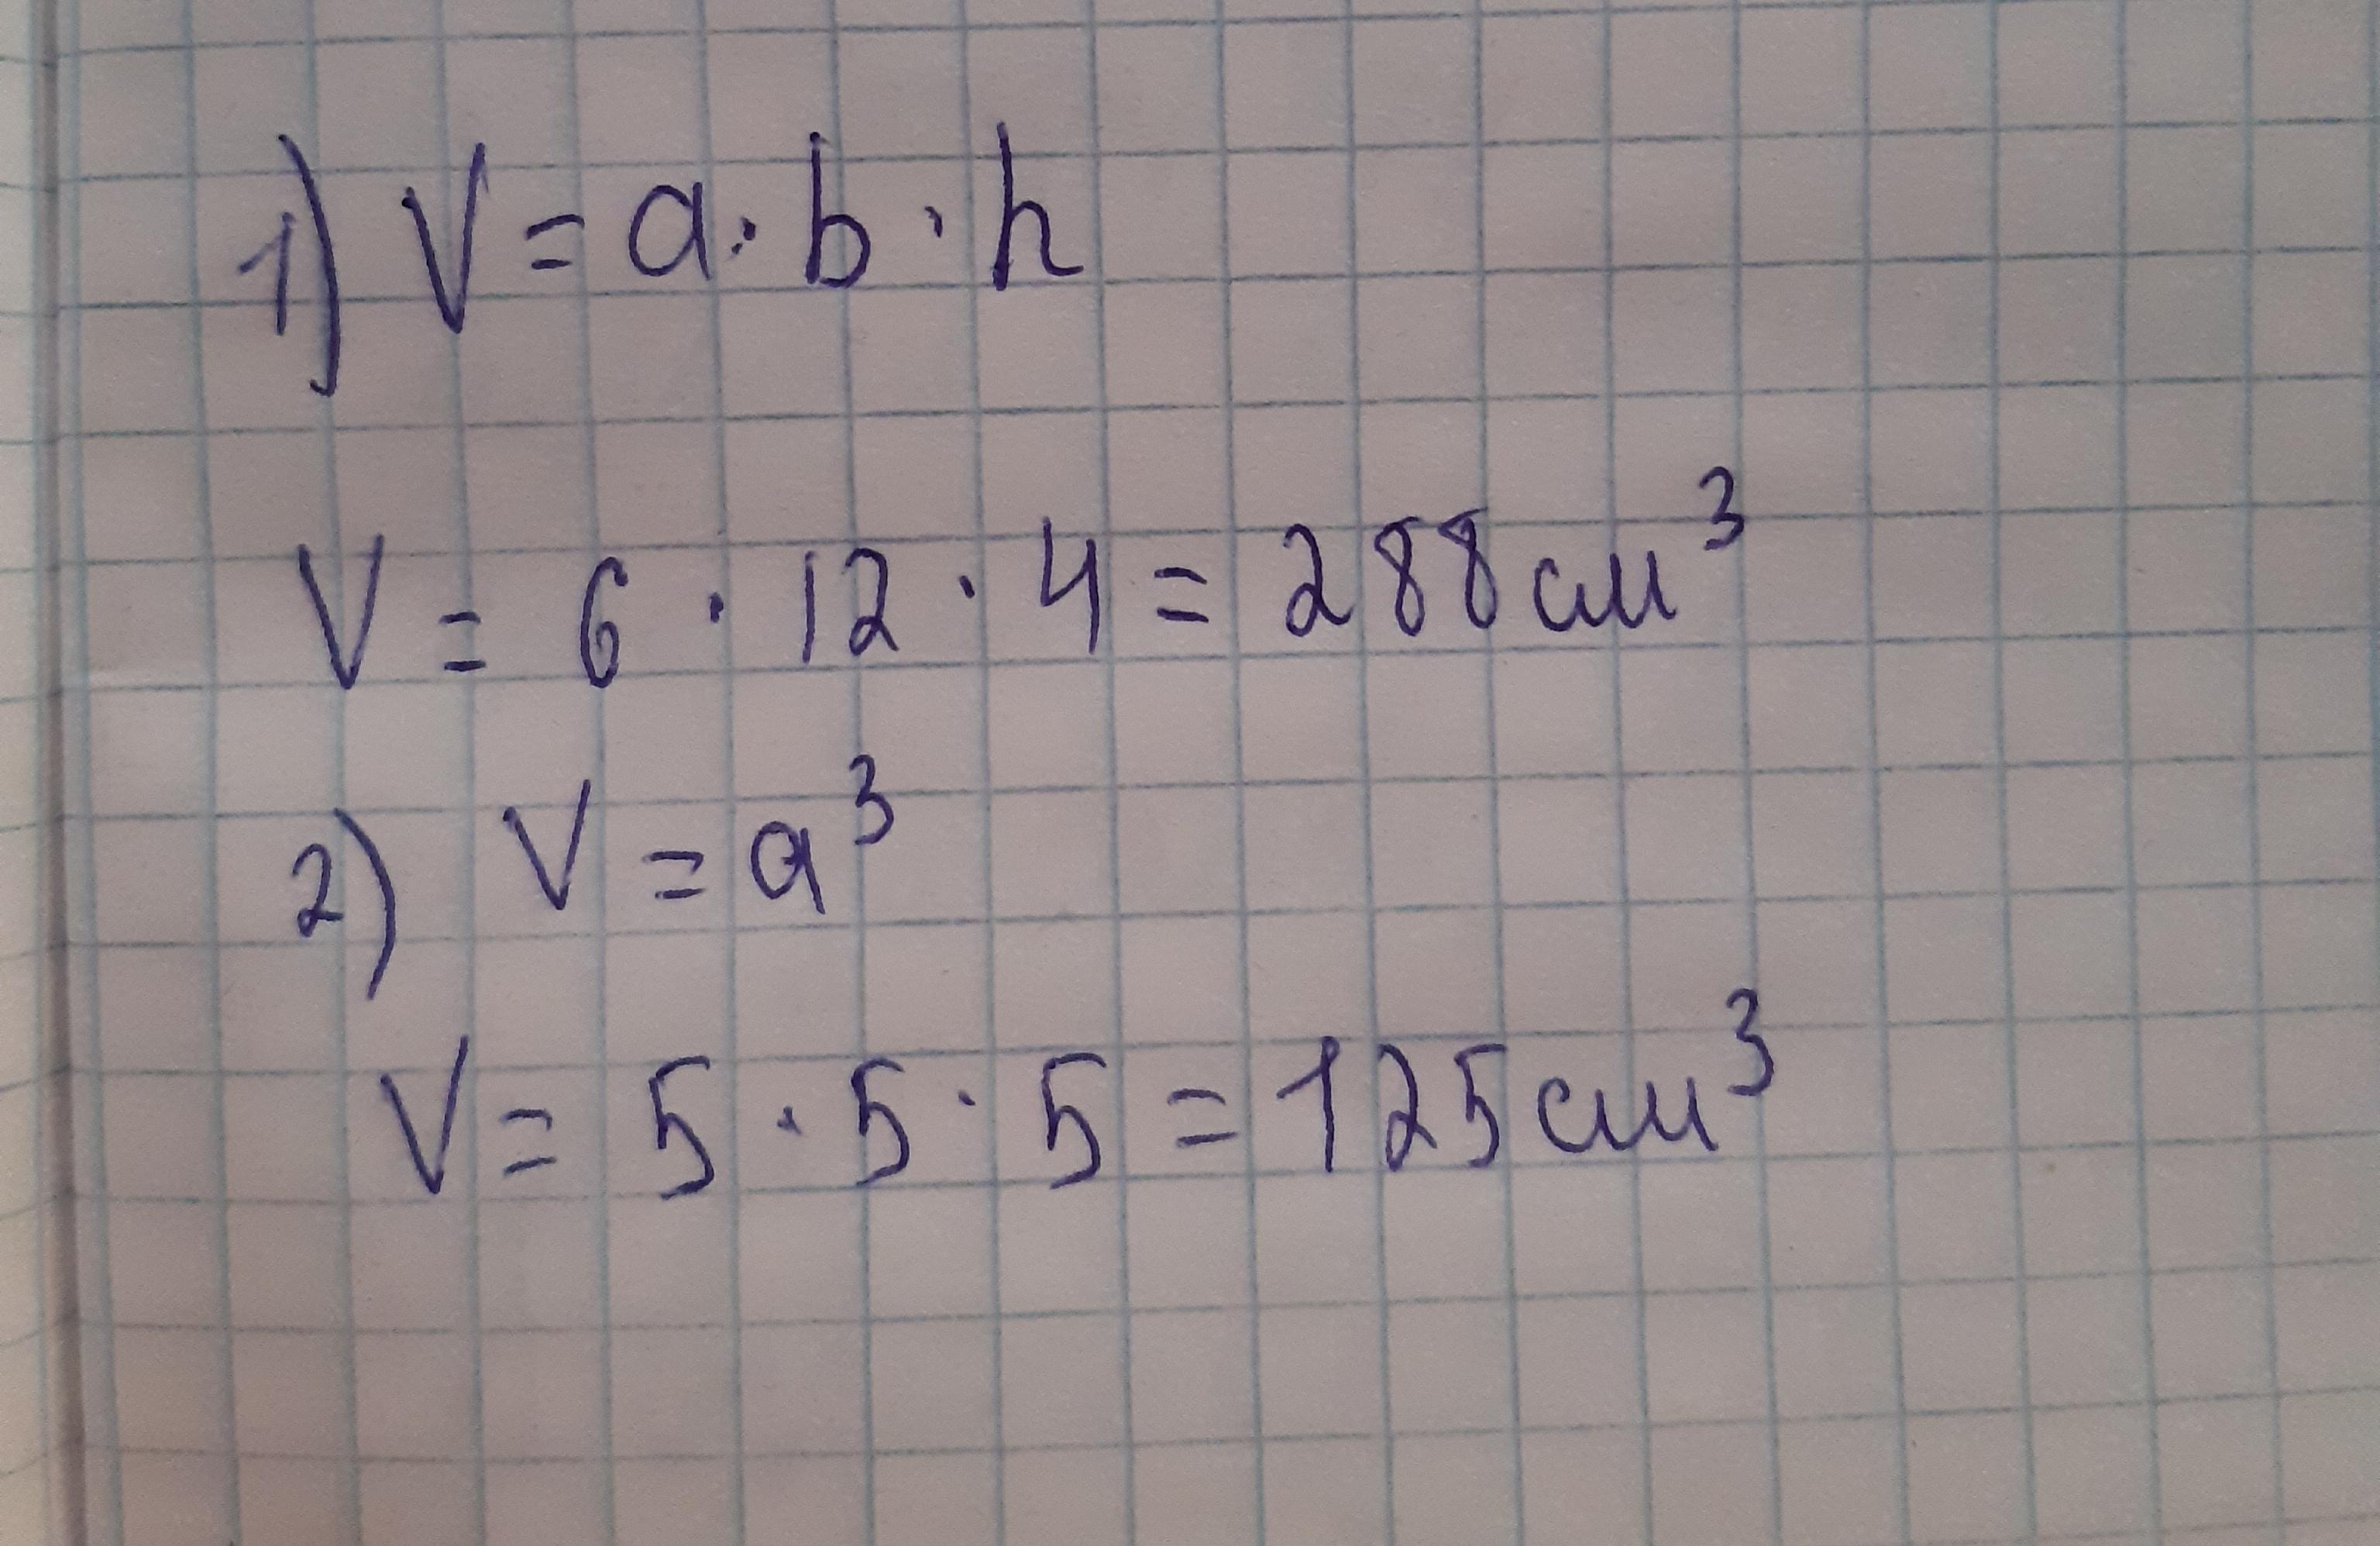 1) V = a · b · h
V = 6 · 12 · 4 = 288 см³
2) V = a³
V = 5 · 5 · 5 = 125 см³